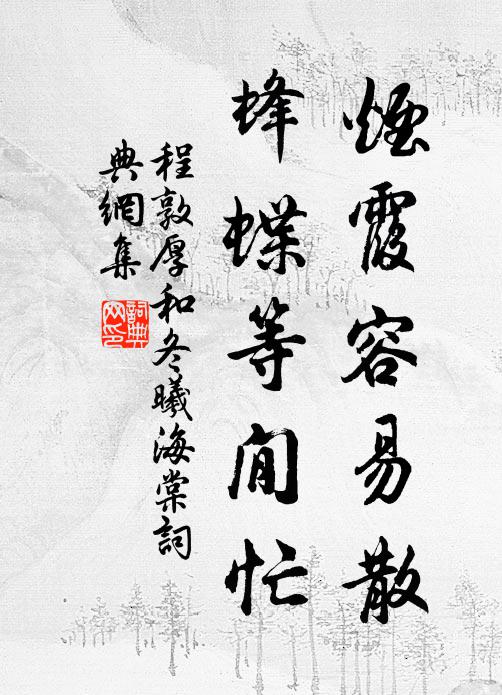 煙霞容易散
蜂蝶等閒忙
程敦厚和冬曦海棠詞
典網集
詞典
网印